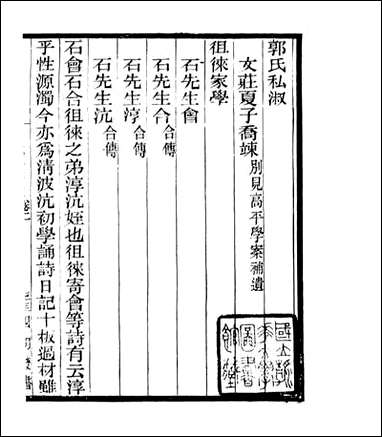 郭氏私淑
文莊夏子喬竦別見高平學案補遺
徂徠家學
石先生會
石先生合合傳
石先生淳合傳
石先生沆合傳
石會石合徂徠之弟淳沆姪也徂徠寄會等詩有云淳
乎性源濁今亦爲淸波沆初學誦詩日記十板過材雖